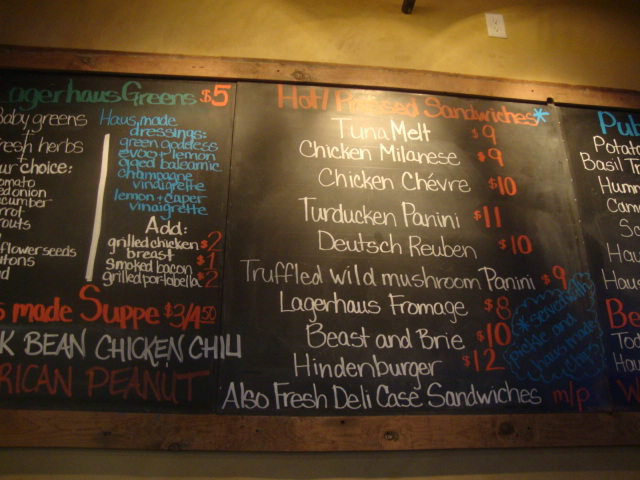 agerhaus Greens $5
Baby greens
Fresh herbs
ur choice:
omato
ed onion
cumber
rrot
routs
flowerseeds
utons
Haus made
dressings:
green goddess
evoo + lemon
aged balsamic
champagne
vinaigrette
lemon + caper
vinaigrette
Add:
grilled chicken $2
breast
smoked bacon $1
grilled portabella $2
s made Suppe $3/4.50
K BEAN CHICKEN CHILI
RICAN PEANUT
Hot/Pressed Sandwiches*
Tuna Melt $9
Chicken Milanese $9
Chicken Chévre $10
Turducken Panini $11
Deutsch Reuben $10
Truffled wild mushroom Panini $9
Lagerhaus Fromage $8
Beast and Brie $10
Hindenburger $12
Also Fresh Deli Case Sandwiches m/p
*served with
pickle and
haus made
chips
Pub
Potato
Basil T
Humm
Cam
S
Hau
Haus
Be
Tod
Hau
W